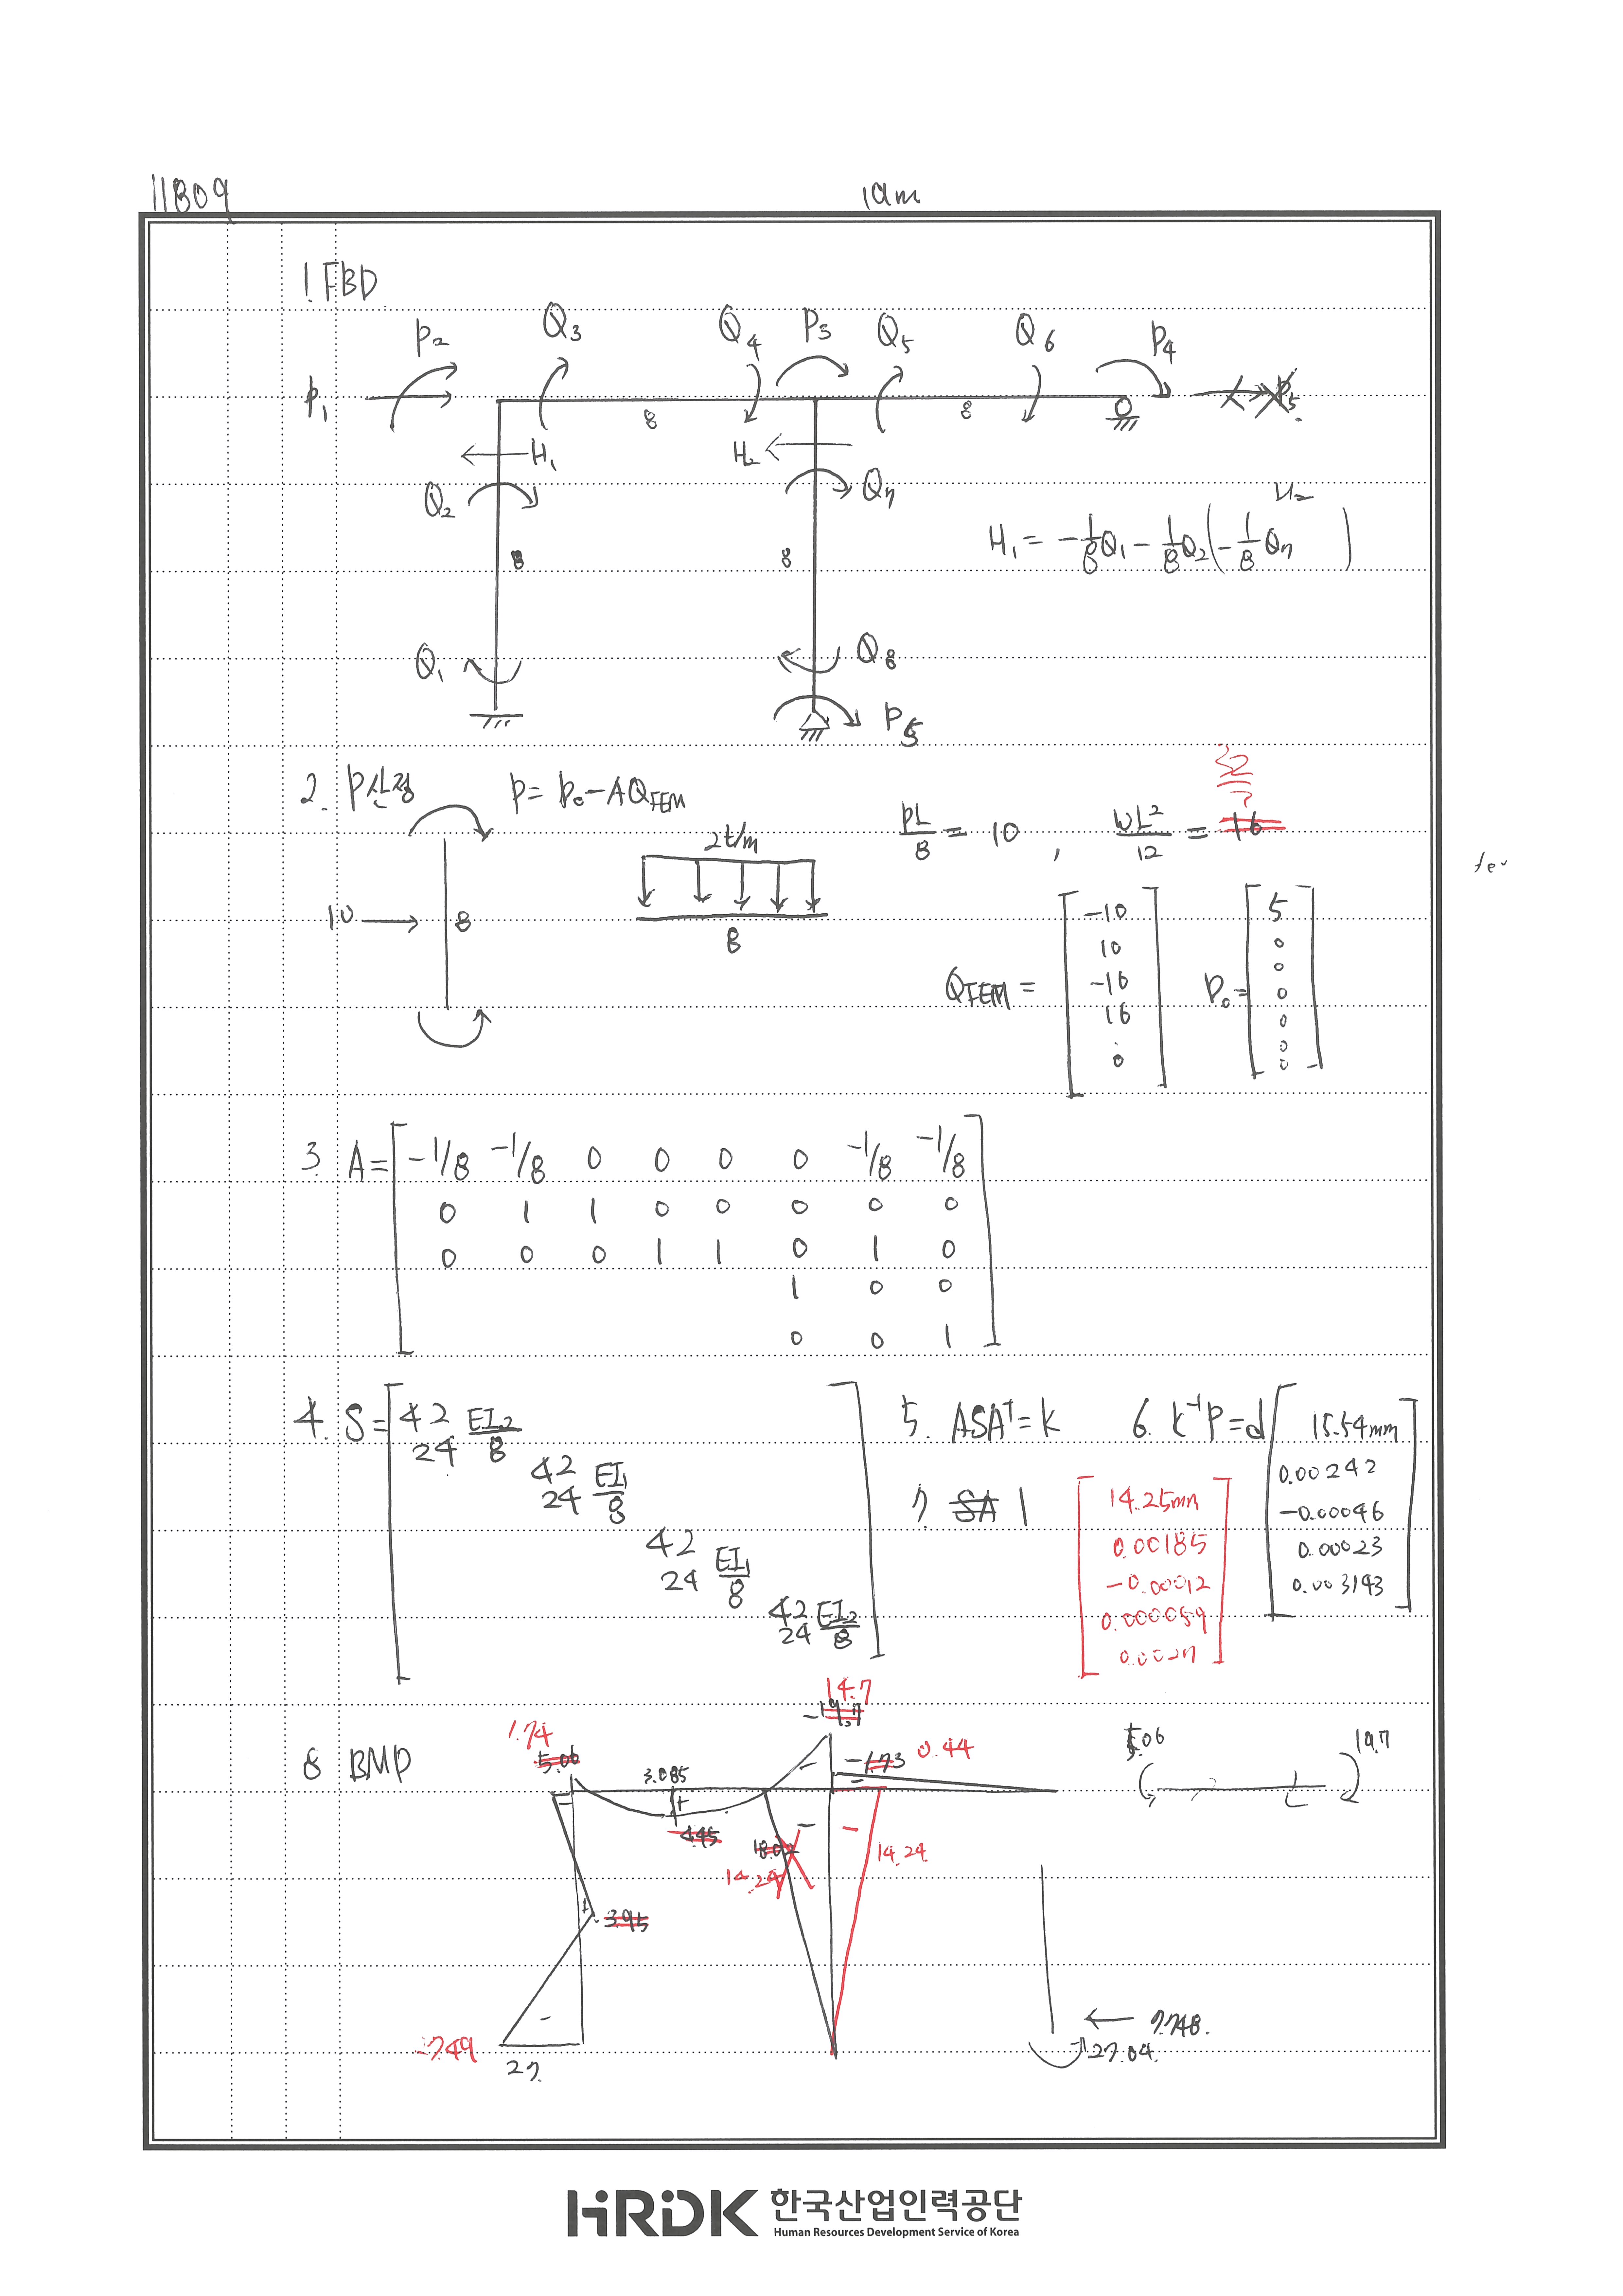 11809
1. FBD
P₂ Q₃ Q₄ P₃ Q₅ Q₆ P₄
P₁ 8 8 P₅
H₁ H₂
Q₂ Q₇
H₂
8 8 H₁ = -1/8 Q₁ - 1/8 Q₂ ( -1/8 Q₇ )
Q₁ Q₈
P₅
2. P산정 P = P₀ - AQFEM PL/8 = 10 , WL²/12 = 16
2t/m
10 8 8
QFEM = [ -10 10 -16 16 . 0 ] P₀ = [ 5 0 0 0 0 0 0 ]
3. A = [ -1/8 -1/8 0 0 0 0 -1/8 -1/8
0 1 1 0 0 0 0 0
0 0 0 1 1 0 1 0
1 0 0
0 0 1 ]
4. S = [ 4 2 EI₂/8
2 4
4 2 EI₁/8
2 4
4 2 EI₁/8
2 4
4 2 EI₂/8
2 4 ]
5. ASAᵀ = K 6. K⁻¹P = d [ 15.54mm
0.00242
-0.00046
0.00023
0.003193 ]
7. SA
[ 14.25mm
0.00185
-0.00012
0.000059
0.0027 ]
8 BMD
1.74 5.06 3.085 14.7 -19.7 -1.73 0.44
4.45 18.02 14.29 14.24
3.95
-7.49 27.
5.06 19.7
7.748.
27.04.
HRDK 한국산업인력공단
Human Resources Development Service of Korea